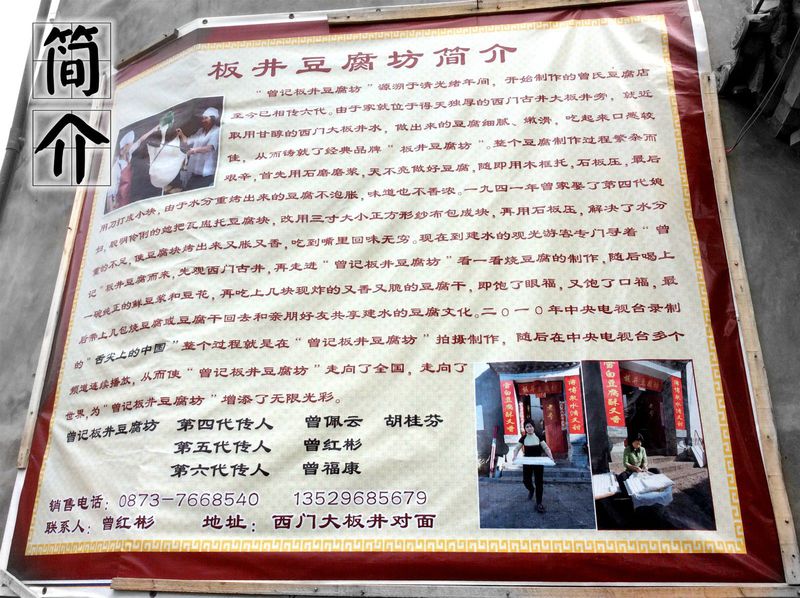 简介
板井豆腐坊简介
“曾记板井豆腐坊”源溯于清光绪年间，开始制作的曾氏豆腐店
至今已相传六代。由于家就位于得天独厚的西门古井大板井旁，就近
取用甘醇的西门大板井水，做出来的豆腐细腻、嫩滑，吃起来口感较
佳，从而铸就了经典品牌“板井豆腐坊”。整个豆腐制作过程繁杂而
艰辛，首先用石磨磨浆，天不亮做好豆腐，随即用木框托，石板压，最后
用刀打成小块，由于水分重烤出来的豆腐不泡胀，味道也不香浓。一九四一年曾家娶了第四代媳
妇，聪明伶俐的她把瓦 托豆腐块，改用三寸大小正方形纱布包成块，再用石板压，解决了水分
重的不足，使豆腐块烤出来又胀又香，吃到嘴里回味无穷。现在到建水的观光游客专门寻着“曾
记”板井豆腐而来，先观西门古井，再走进“曾记板井豆腐坊”看一看烧豆腐的制作，随后喝上
一碗纯正的鲜豆浆和豆花，再吃上几块现炸的又香又脆的豆腐干，即饱了眼福，又饱了口福，最
后带上几包烧豆腐或豆腐干回去和亲朋好友共享建水的豆腐文化。二〇一〇年中央电视台录制
的“舌尖上的中国”整个过程就是在“曾记板井豆腐坊”拍摄制作，随后在中央电视台多个
频道连续播放，从而使“曾记板井豆腐坊”走向了全国，走向了
世界，为“曾记板井豆腐坊”增添了无限光彩。
曾记板井豆腐坊 第四代传人 曾佩云 胡桂芬
第五代传人 曾红彬
第六代传人 曾福康
销售电话：0873-7668540 13529685679
联系人：曾红彬 地址：西门大板井对面